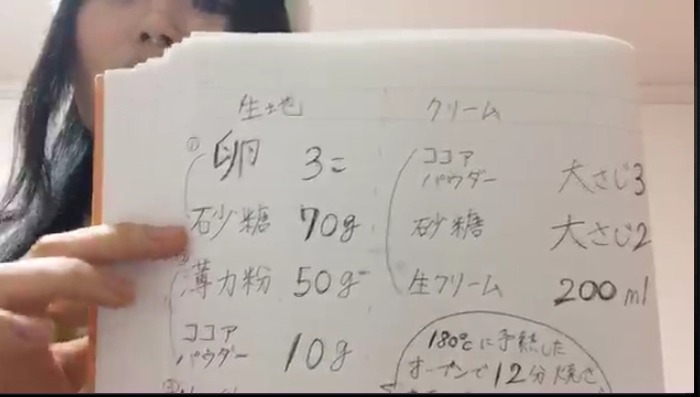 生地
① 卵 3こ
砂糖 70g
② 薄力粉 50g
ココア
パウダー 10g
③
クリーム
ココア
パウダー 大さじ3
砂糖 大さじ2
生クリーム 200ml
180℃に予熱した
オーブンで12分焼き